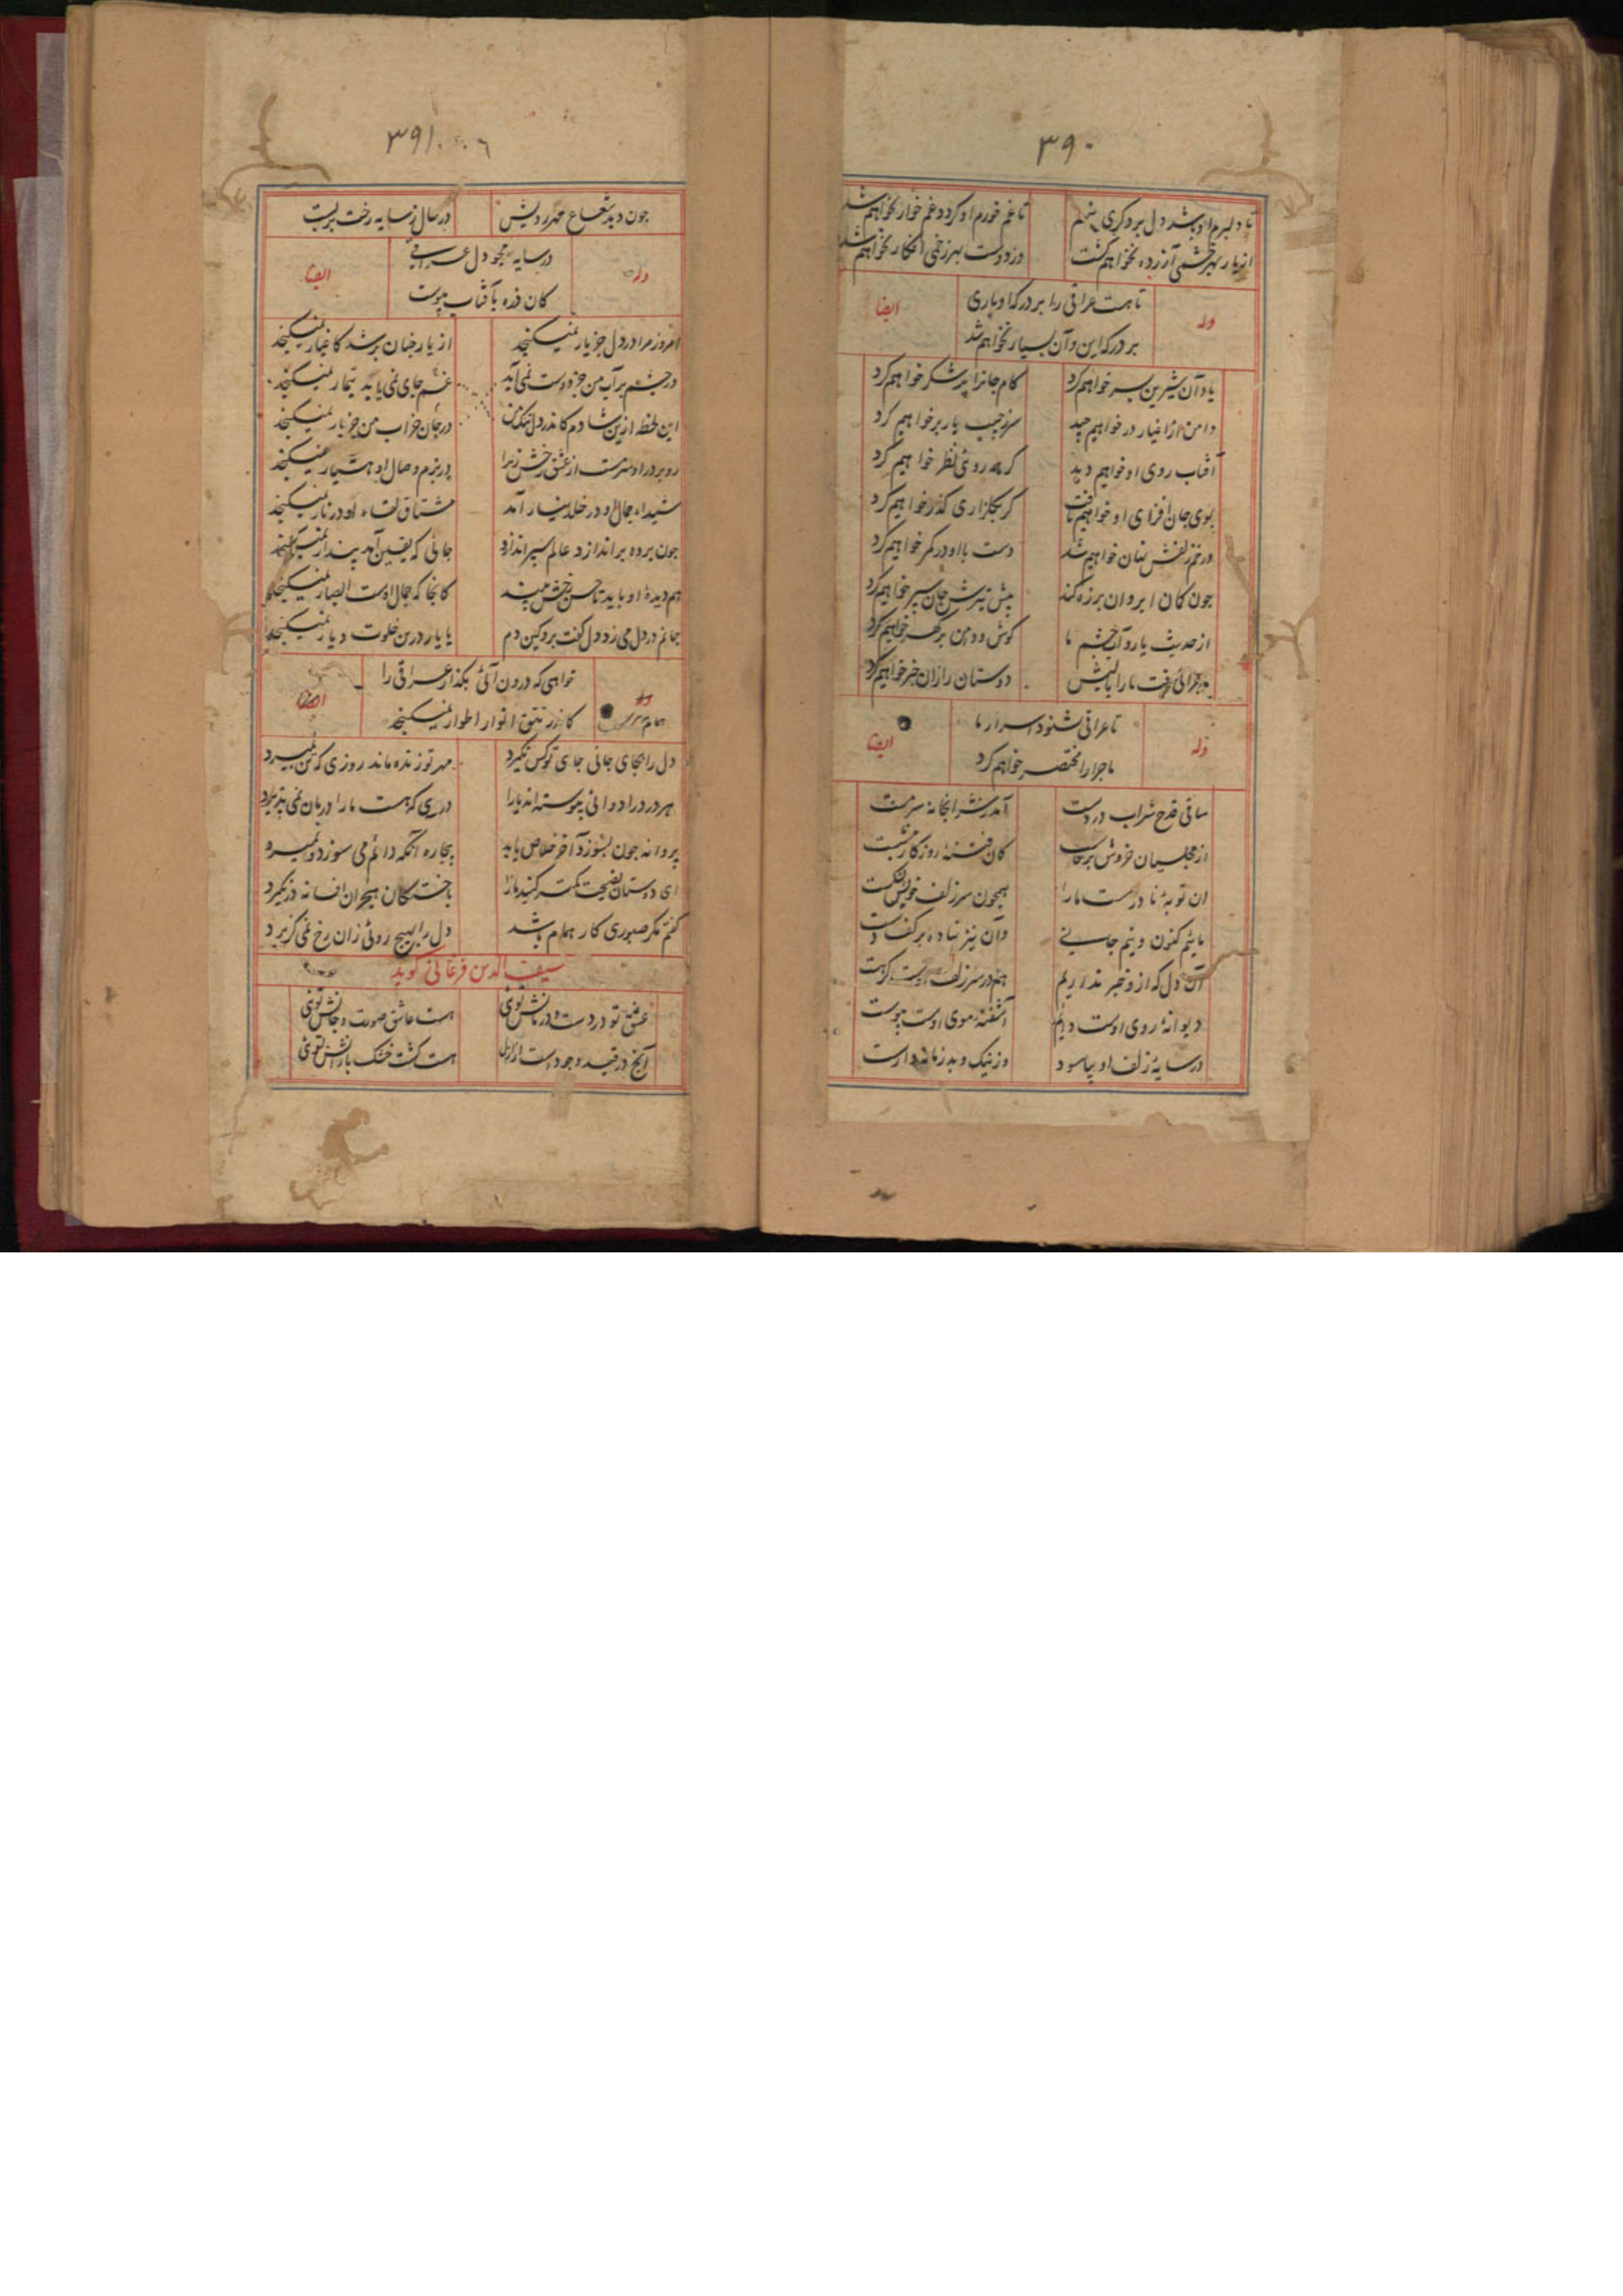 ۳۹۰
تا دلبرم او باشد دل بر دگری ننهم تا غم خورم او گردد غم خوار نخواهم شد
از یار بهر خشمی آزرده نخواهم گشت وز دوست بهر زخمی افکار نخواهم شد
وله تا هست عراقی را بر درگه او باری ایضا
بر درگه این و آن بسیار نخواهم شد
یاد آن شیرین پسر خواهیم کرد کام جانرا پر شکر خواهیم کرد
دامن از اغیار در خواهیم چید سر ز جیب یار بر خواهیم کرد
آفتاب روی او خواهیم دید گر بمه روئی نظر خواهیم کرد
بوی جان افزای او خواهیم یافت گر بگلزاری گذر خواهیم کرد
در خم زلفش نهان خواهیم شد دست با او در کمر خواهیم کرد
چون کمان ابروان بر زه کند پیش تیرش جان سپر خواهیم کرد
از حدیث یار و آب چشم ما گوش و دامن پر گهر خواهیم کرد
ماجرائی رفت ما را با لبش دوستان را زان خبر خواهیم کرد
وله تا عراقی نشنود اسرار ما ایضا
ماجرا را مختصر خواهیم کرد
ساقی قدح شراب در دست آمد ز شرابخانه سرمست
از مجلسیان خروش برخاست کان فتنه روزگار بنشست
ان توبه نادرست ما را همچون سر زلف خویش بشکست
مائیم کنون و نیم جانی وان نیز نهاده بر کف دست
آن دل که ازو خبر نداریم هم در سر زلف اوست گر هست
دیوانه روی اوست دایم آشفته موی اوست پیوست
در سایه زلف او بیاسود وز نیک و بد زمانه وارست
۳۹۱
چون دید شعاع مهر رویش در حال ز سایه رخت بربست
وله در سایه مجو دل عراقی ایضا
کان ذره بآفتاب پیوست
امروز مرا در دل جز یار نمیگنجد از یار چنان پر شد کاغیار نمیگنجد
در چشم پر آب من جز دوست نمی آید غم جای نمی یابد تیمار نمیگنجد
این لحظه ازین شادم کاندر دل تنگ من در جان خراب من جز یار نمیگنجد
رو بر در او سرمست از عشق رخش زیرا در بزم وصال او هشیار نمیگنجد
شیداء جمال او در خلد نیارامد مشتاق لقاء او در نار نمیگنجد
چون پرده براندازد عالم بسر اندازد جائی که یقین آمد پندار نمیگنجد
هم دیده او باید تا حسن رخش بیند کانجا که جمال اوست ابصار نمیگنجد
جانم در دل می زد دل گفت برو کین دم با یار درین خلوت دیار نمیگنجد
وله خواهی که درون آئی بگذار عراقی را ایضا
همام کاندر تتق انوار اطوار نمیگنجد
دل را بجای جانی جای تو کس نگیرد مهر تو زنده ماند روزی که تن بمیرد
هر درد را دوائی پیوسته اند یارا دردی که هست ما را درمان نمی پذیرد
پروانه چون بسوزد آخر خلاص یابد بیچاره آنکه دائم می سوزد و نمیرد
ای دوستان نصیحت کمتر کنید ما را با خستگان هجران افسانه درنگیرد
گفتم مگر صبوری کار همام باشد دل را بهیچ روئی زان رخ نمی گزیرد
سیف الدین فرغانی گوید
عشق تو دردست و درمانش توئی هست عاشق صورت و جانش توئی
آنچ در قید وجودست از ازل هست کشت خشک بارانش توئی